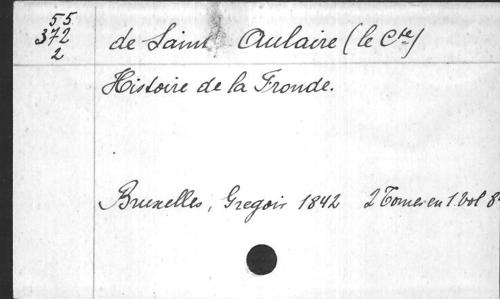 55
372
2
de Saint Aulaire (le Cte)
Histoire de la Fronde.
Bruxelles, Gregoir 1842 2 Tomes en 1. vol 8